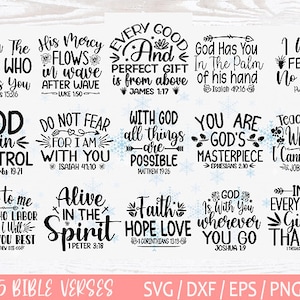 The
WHO
15:26
His Mercy
FLOWS
in wave
AFTER WAVE
LUKE 1:50
EVERY GOOD
And
PERFECT GIFT
is from above
JAMES 1:17
God Has You
In The Palm
of his hand
Isaiah 49:16
DO NOT FEAR
FOR I AM
WITH YOU
ISAIAH 41:10
WITH GOD
all things
are
POSSIBLE
MATTHEW 19:26
YOU ARE
GOD'S
MASTERPIECE
EPHESIANS 2:10
to me
LABOR
will
REST
Alive
IN THE
Spirit
1 PETER 3:18
Faith
HOPE LOVE
1 CORINTHIANS 13:13
GOD
Is With You
wherever
YOU GO
JOSHUA 1:9
BIBLE VERSES
SVG / DXF / EPS / PNG